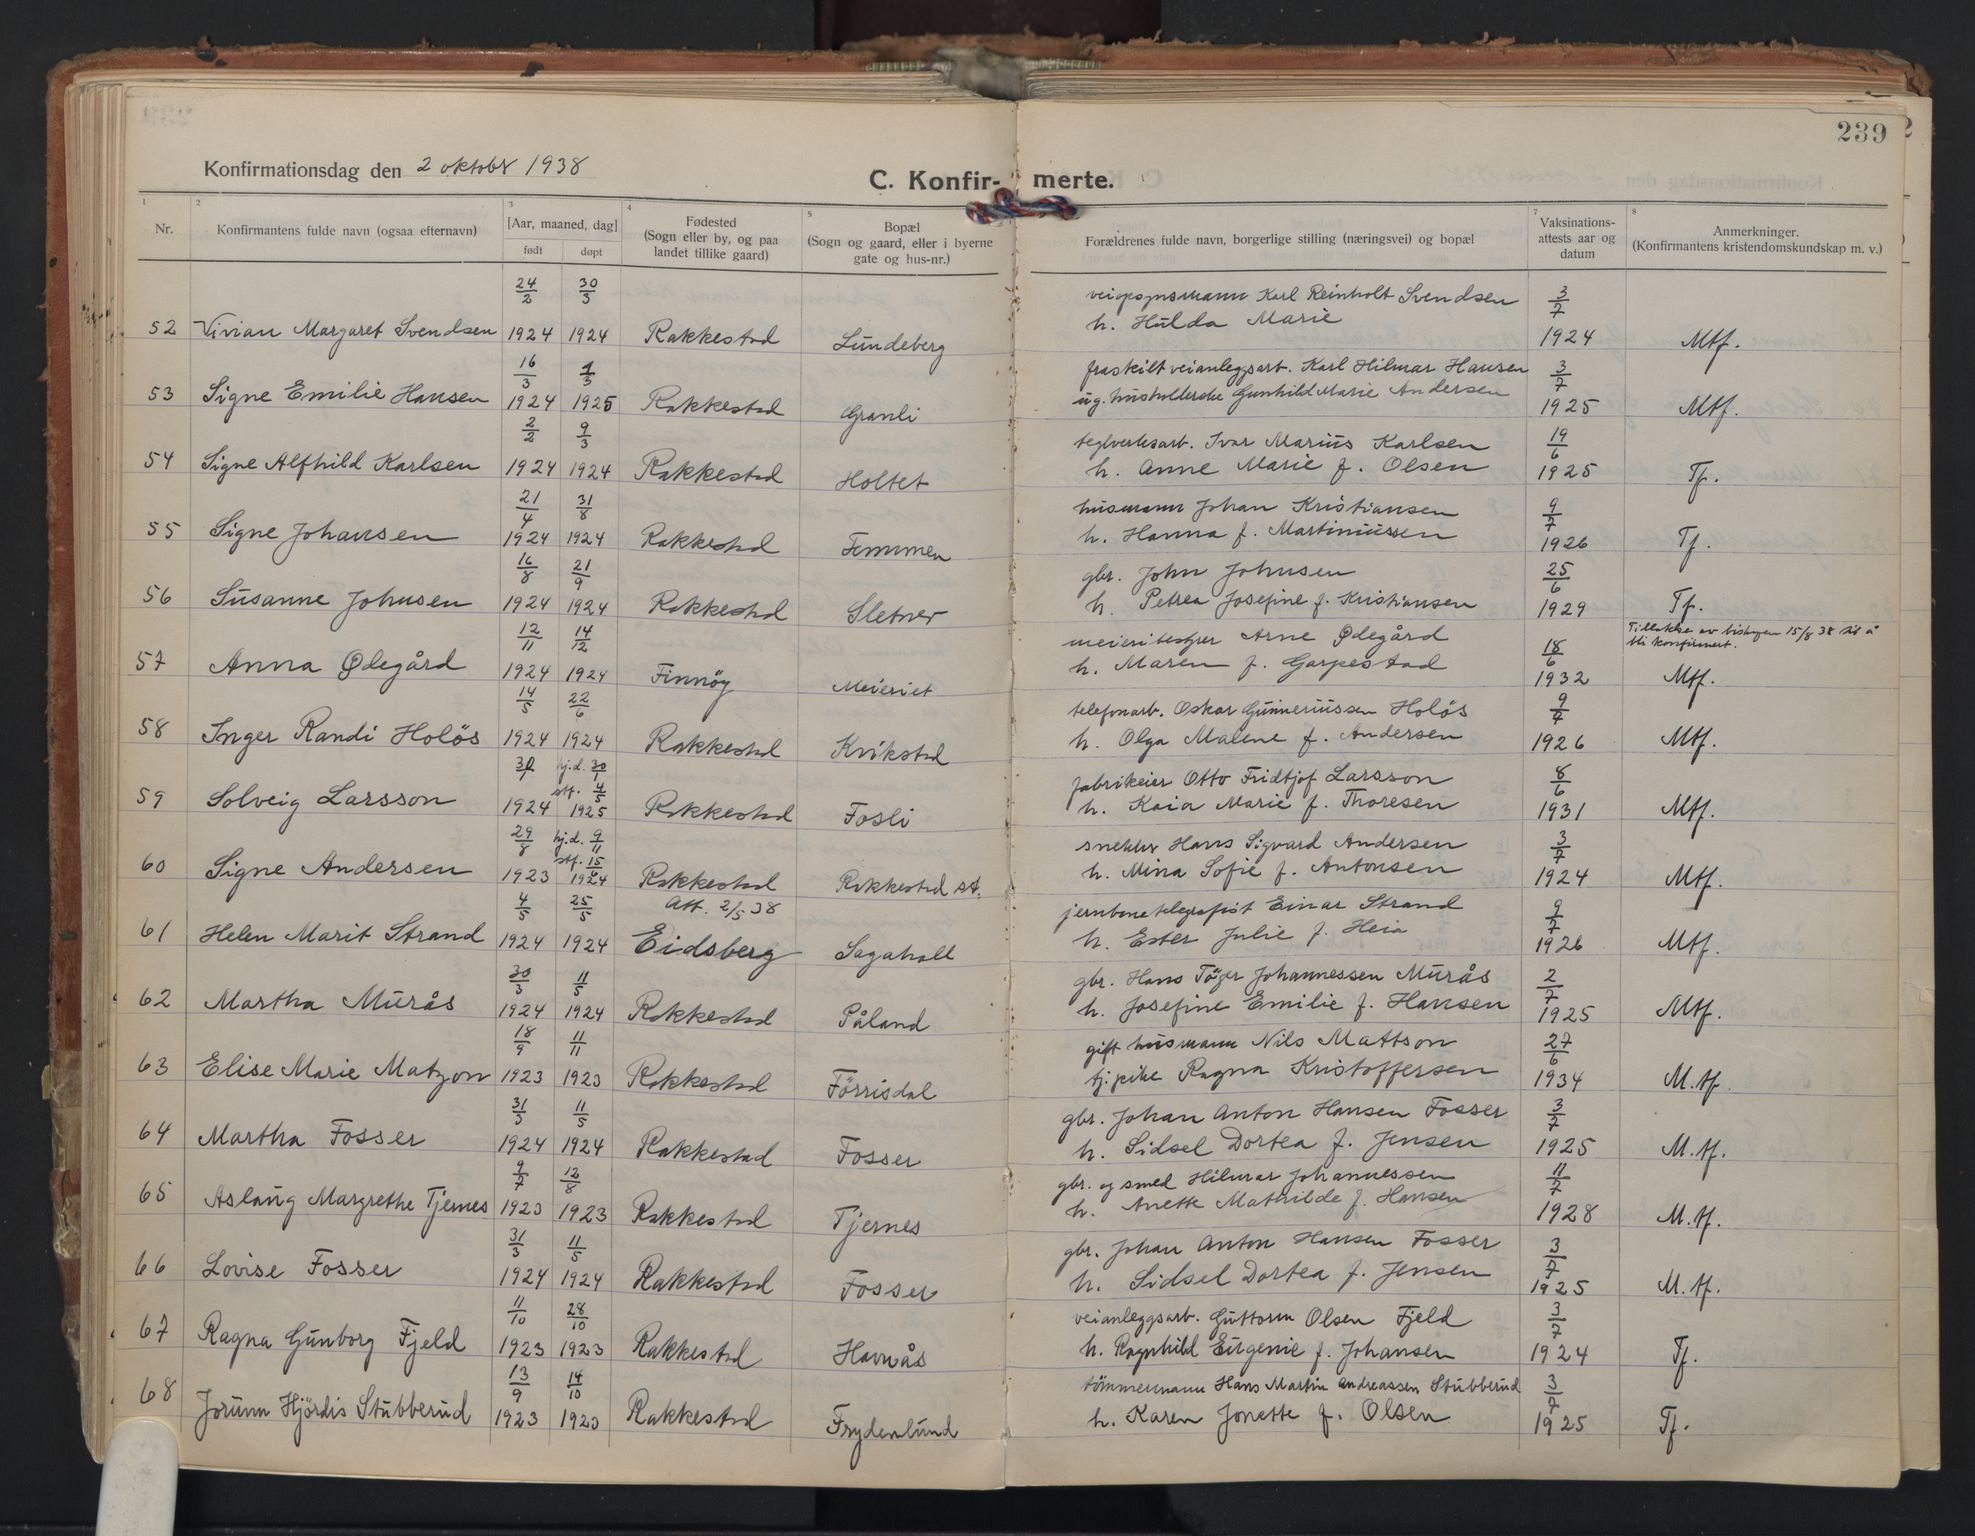 239
Konfirmationsdag den 2 oktobr 1938
C. Konfir- merte.
1 2 3 4 5 7 8
Nr. Konfirmantens fulde navn (ogsaa efternavn) [Aar, maaned, dag] født døpt Fødested (Sogn eller by, og paa landet tillike gaard) Bopæl (Sogn og gaard, eller i byerne gate og hus-nr.) Forældrenes fulde navn, borgerlige stilling (næringsvei) og bopæl Vaksinations-attests aar og datum Anmerkninger. (Konfirmantens kristendomskundskap m. v.)
24/2 30/3 Karl Reinholt Svendsen 3/7
52 Vivian Margaret Svendsen 1924 1924 Rakkestad Lundeberg h. Hulda Marie 1924 Mtf.
16/3 1/3 fraskilt veianleggsarb. Karl Hilmar Hansen 3/7
53 Signe Emilie Hansen 1924 1925 Rakkestad Granli ug. husholderske Gunhild Marie Andersen 1925 Mtf.
2/2 9/3 teglverksarb. Ivar Marius Karlsen 19/6
54 Signe Alfhild Karlsen 1924 1924 Rakkestad Holtet h. Anne Marie f. Olsen 1925 Tf.
21/4 31/8 husmann Johan Kristiansen 9/7
55 Signe Johansen 1924 1924 Rakkestad Temmen h. Hanna f. Martinussen 1926 Tf.
16/8 21/9 gbr. John Johnsen 25/6
56 Susanne Johnsen 1924 1924 Rakkestad Sletner h. Petrea Josefine f. Kristiansen 1929 Tf.
12/11 14/12 meieribestyrer Arne Ødegård 18/6 Tillatelse av biskopen 15/8 38 til å bli konfirmert.
57 Anna Ødegård 1924 1924 Finnöy Meieriet h. Maren f. Garpestad 1932 Mtf.
14/5 22/6 telefonarb. Oskar Gunneriussen Holös 9/7
58 Inger Randi Holös 1924 1924 Rakkestad Kvikstad h. Olga Malene f. Andersen 1926 Mtf.
hj.d. 30/1 stf. 4/5 fabrikeier Otto Fridtjof Larsson 8/6
59 Solveig Larsson 1924 1925 Rakkestad Fosli h. Kaia Marie f. Thoresen 1931 Mtf.
29/8 hj.d. 9/11 stf. snekker Hans Sigvard Andersen 3/7
60 Signe Andersen 1923 1924 Rakkestad Rakkestad st. h. Mina Sofie f. Antonsen 1924 Mtf.
4/5 25/5 Att. 2/5 38 jernbanetelegrafist Einar Strand 9/7
61 Helen Marit Strand 1924 1924 Eidsberg Sagatroll h. Ester Julie f. Heia 1926 Mtf.
30/3 11/5 gbr. Hans Töger Johannessen Murås 2/7
62 Martha Murås 1924 1924 Rakkestad Påland h. Josefine Emilie f. Hansen 1925 Mtf.
18/9 11/11 gift husmann Nils Mattson 27/6
63 Elise Marie Matzon 1923 1923 Rakkestad Förrisdal tj.pike Ragna Kristoffersen 1934 M.tf.
31/3 11/5 gbr. Johan Anton Hansen Fosser 3/7
64 Martha Fosser 1924 1924 Rakkestad Fosser h. Sidsel Dortea f. Jensen 1925 M.tf.
9/7 12/8 gbr. og smed Hilmar Johannessen 11/7
65 Aslaug Margrethe Tjernes 1923 1923 Rakkestad Tjernes h. Anette Mathilde f. Hansen 1928 M.tf.
31/3 11/5 gbr. Johan Anton Hansen Fosser 3/7
66 Lovise Fosser 1924 1924 Rakkestad Fosser h. Sidsel Dortea f. Jensen 1925 M.tf.
11/10 28/10 veianleggsarb. Guttorm Olsen Fjeld 3/7
67 Ragna Gunborg Fjeld 1923 1923 Rakkestad Havnås h. Ragnhild Eugenie f. Johansen 1924 Tf.
13/9 14/10 tömmermann Hans Martin Andreassen Stubberud 3/7
68 Jorunn Hjördis Stubberud 1923 1923 Rakkestad Frydenlund h. Karen Jonette f. Olsen 1925 Tf.